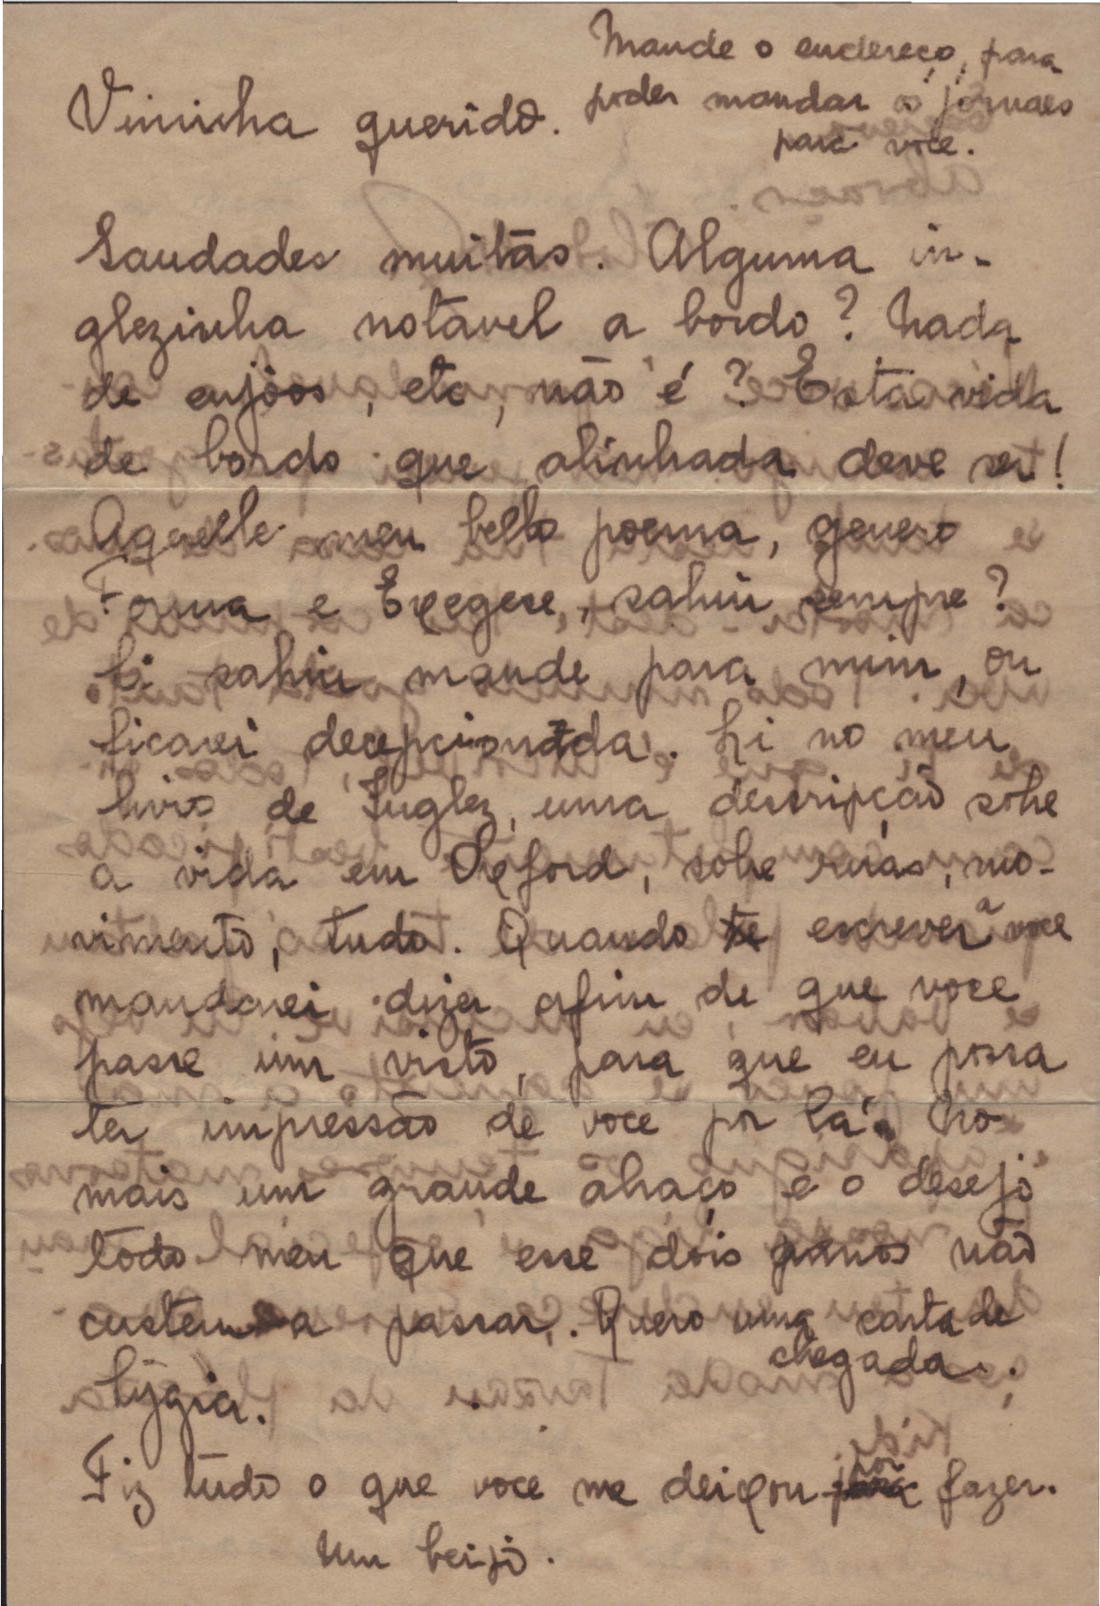 Mande o endereço, para
poder mandar os jornaes
para voce.
Vininha querido.
Saudades muitas. Alguma in-
glezinha notavel a bordo? Nada
de enjôos, etc, não é? Esta vida
de bordo que alinhada deve ser!
Aquelle meu bello poema, genero
Forma e Exegese, sahiu sempre?
Si sahiu mande para mim, ou
ficarei decepcionada. Li no meu
livro de Inglez, uma descripção sobre
a vida em Oxford, sobre ruas, mo-
vimento, tudo. Quando te escrever a voce
mandarei dizer afim de que voce
passe um visto, para que eu possa
ter impressão de voce por lá. No
mais um grande abraço e o desejo
todo meu que esse dois annos não
custem a passar. Quero uma carta de
chegada.
Lygia.
Fiz tudo o que voce me deixou por fazer.
Um beijo.